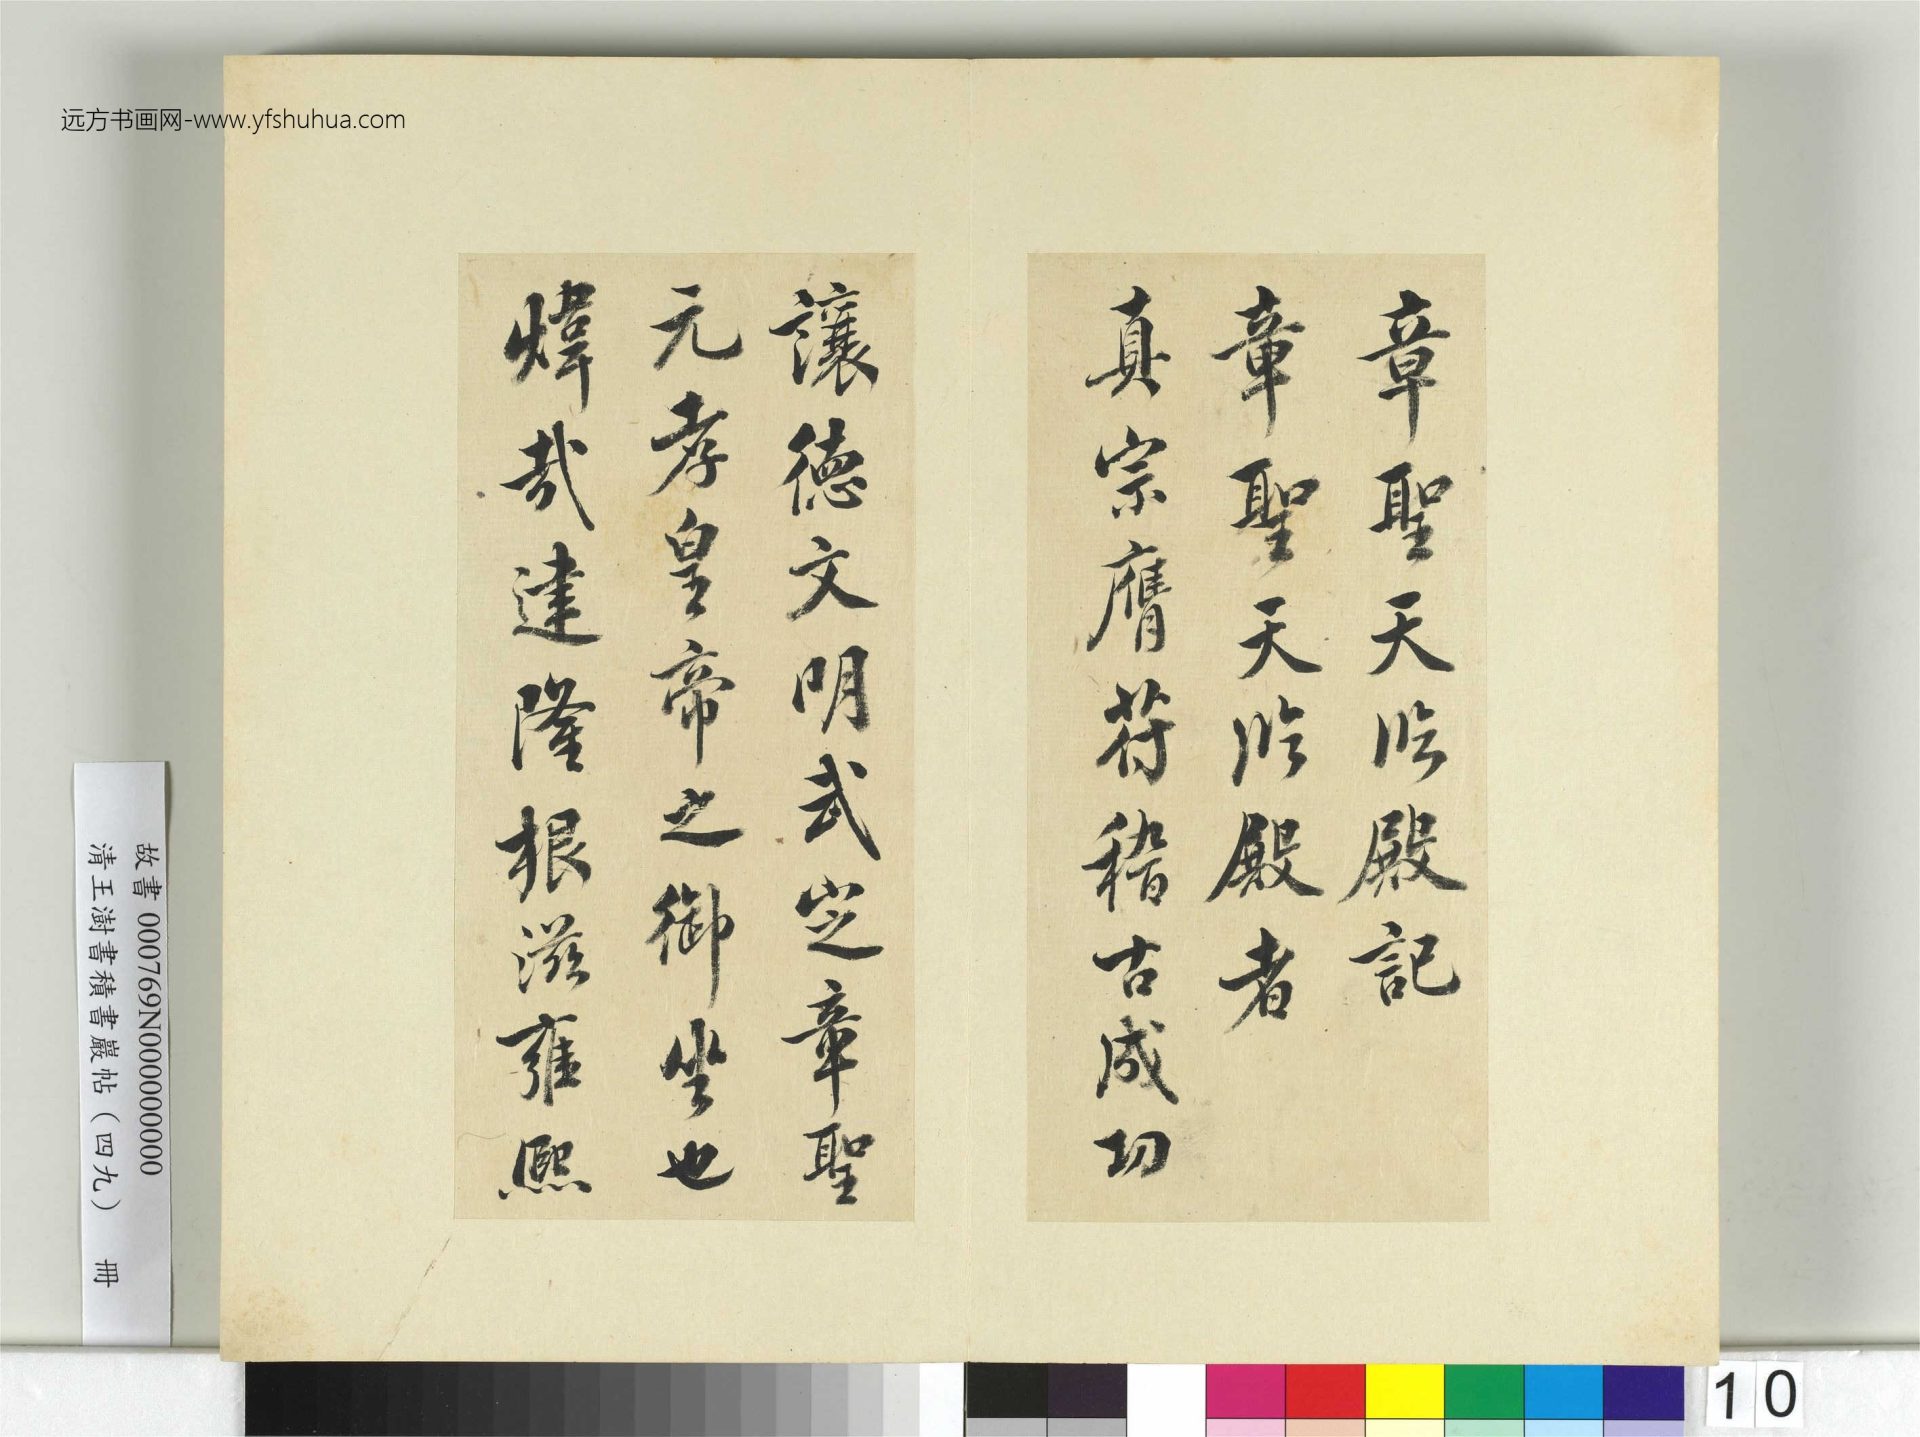 远方书画网-www.yfshuhua.com
章聖天臨殿記
章聖天臨殿者
真宗膺符稽古成功
讓德文明武定章聖
元孝皇帝之御坐也
煒哉建隆根滋雍熙
故書 000769N000000000
清王澍書積書巖帖(四九) 冊
10